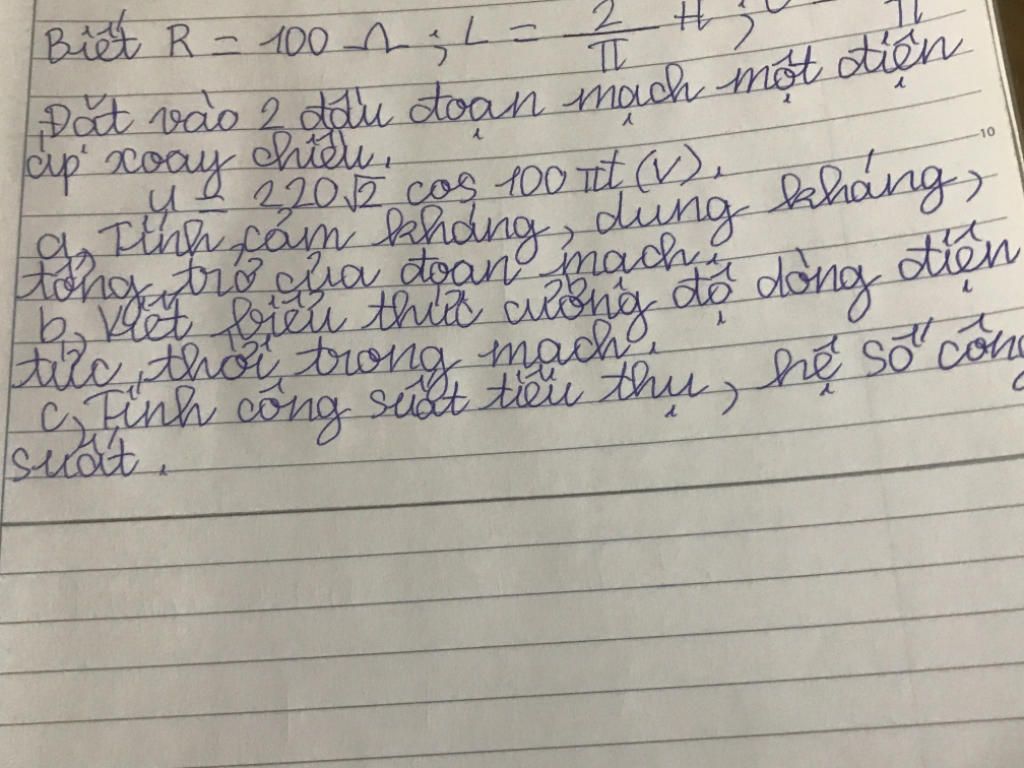 Biết R = 100 Ω ; L = 2/π H ;
Đặt vào 2 đầu đoạn mạch một điện
áp xoay chiều.
u = 220√2 cos 100πt (V).
a, Tính cảm kháng, dung kháng,
tổng trở của đoạn mạch.
b, Viết biểu thức cường độ dòng điện
tức thời trong mạch.
c, Tính công suất tiêu thụ, hệ số công
suất.
10